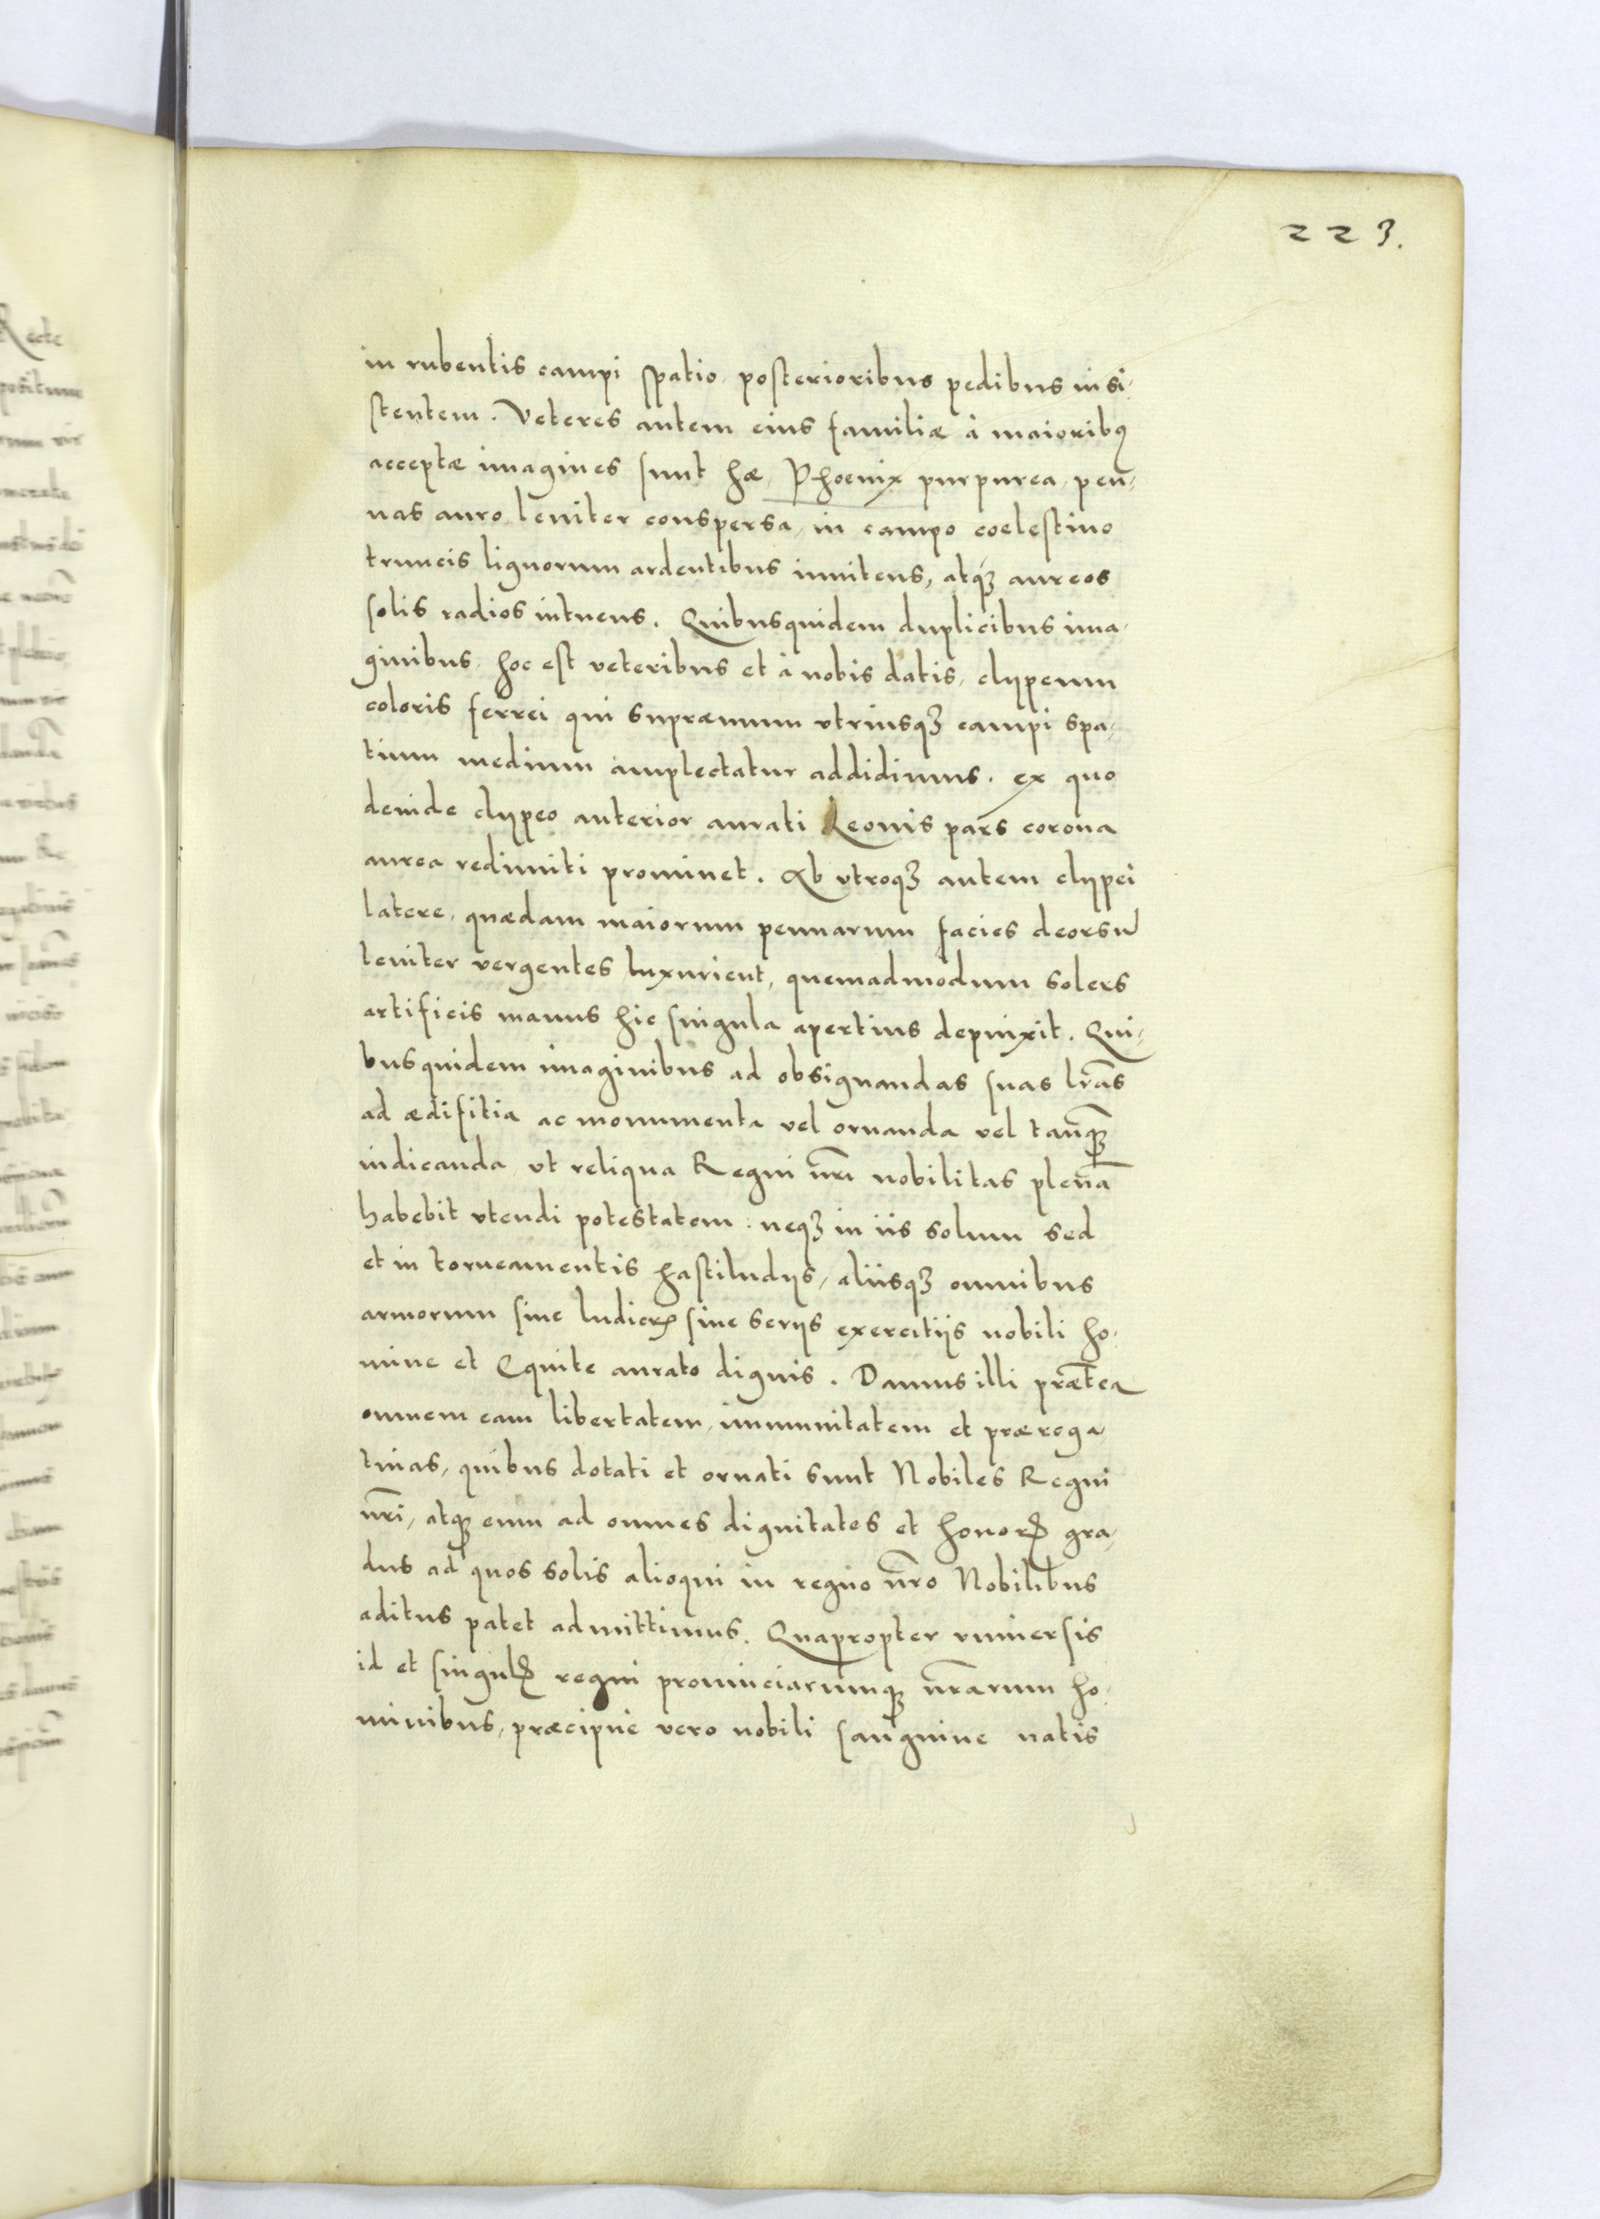 223.
in rubentis campi spatio, posterioribus pedibus insi-
stentem. Veteres autem eius familiæ à maioribꝰ
acceptæ imagines sunt hæ, Phoenix purpurea, pen-
nas auro leniter conspersa, in campo coelestino
truncis lignorum ardentibus innitens, atqꝫ aureos
solis radios intuens. Quibusquidem duplicibus ima-
ginibus, hoc est veteribus et à nobis datis, clypeum
coloris ferrei qui supræmum vtriusqꝫ campi spa-
tium medium amplectatur addidimus. ex quo
deinde clypeo anterior aurati Leonis pars corona
aurea redimiti prominet. Ab vtroqꝫ autem clypei
latere, quædam maiorum pennarum facies deorsū
leniter vergentes luxurient, quemadmodum solers
artificis manus hic singula apertius depinxit. Qui-
busquidem imaginibus ad obsignandas suas lr̃as
ad ædifitia ac monumenta vel ornanda vel tanqꝫ
indicanda, vt reliqua Regni nr̃i nobilitas plenā
habebit vtendi potestatem. neqꝫ in iis solum sed
et in torneamentis hastiludijs, aliisqꝫ omnibus
armorum siue ludicrꝭ siue serijs exercitijs nobili ho-
mine et Equite aurato dignis. Damus illi præt̃ea
omnem eam libertatem, immunitatem et præroga-
tiuas, quibus dotati et ornati sunt Nobiles Regni
nr̃i, atqꝫ eum ad omnes dignitates et honorꝭ gra-
dus ad quos solis alioqui in regno nr̃o Nobilibus
aditus patet admittimus. Quapropter vniuersis
id et singulꝭ regni prouinciarumqꝫ nr̃arum ho-
minibus, præcipuè vero nobili sanguine natis